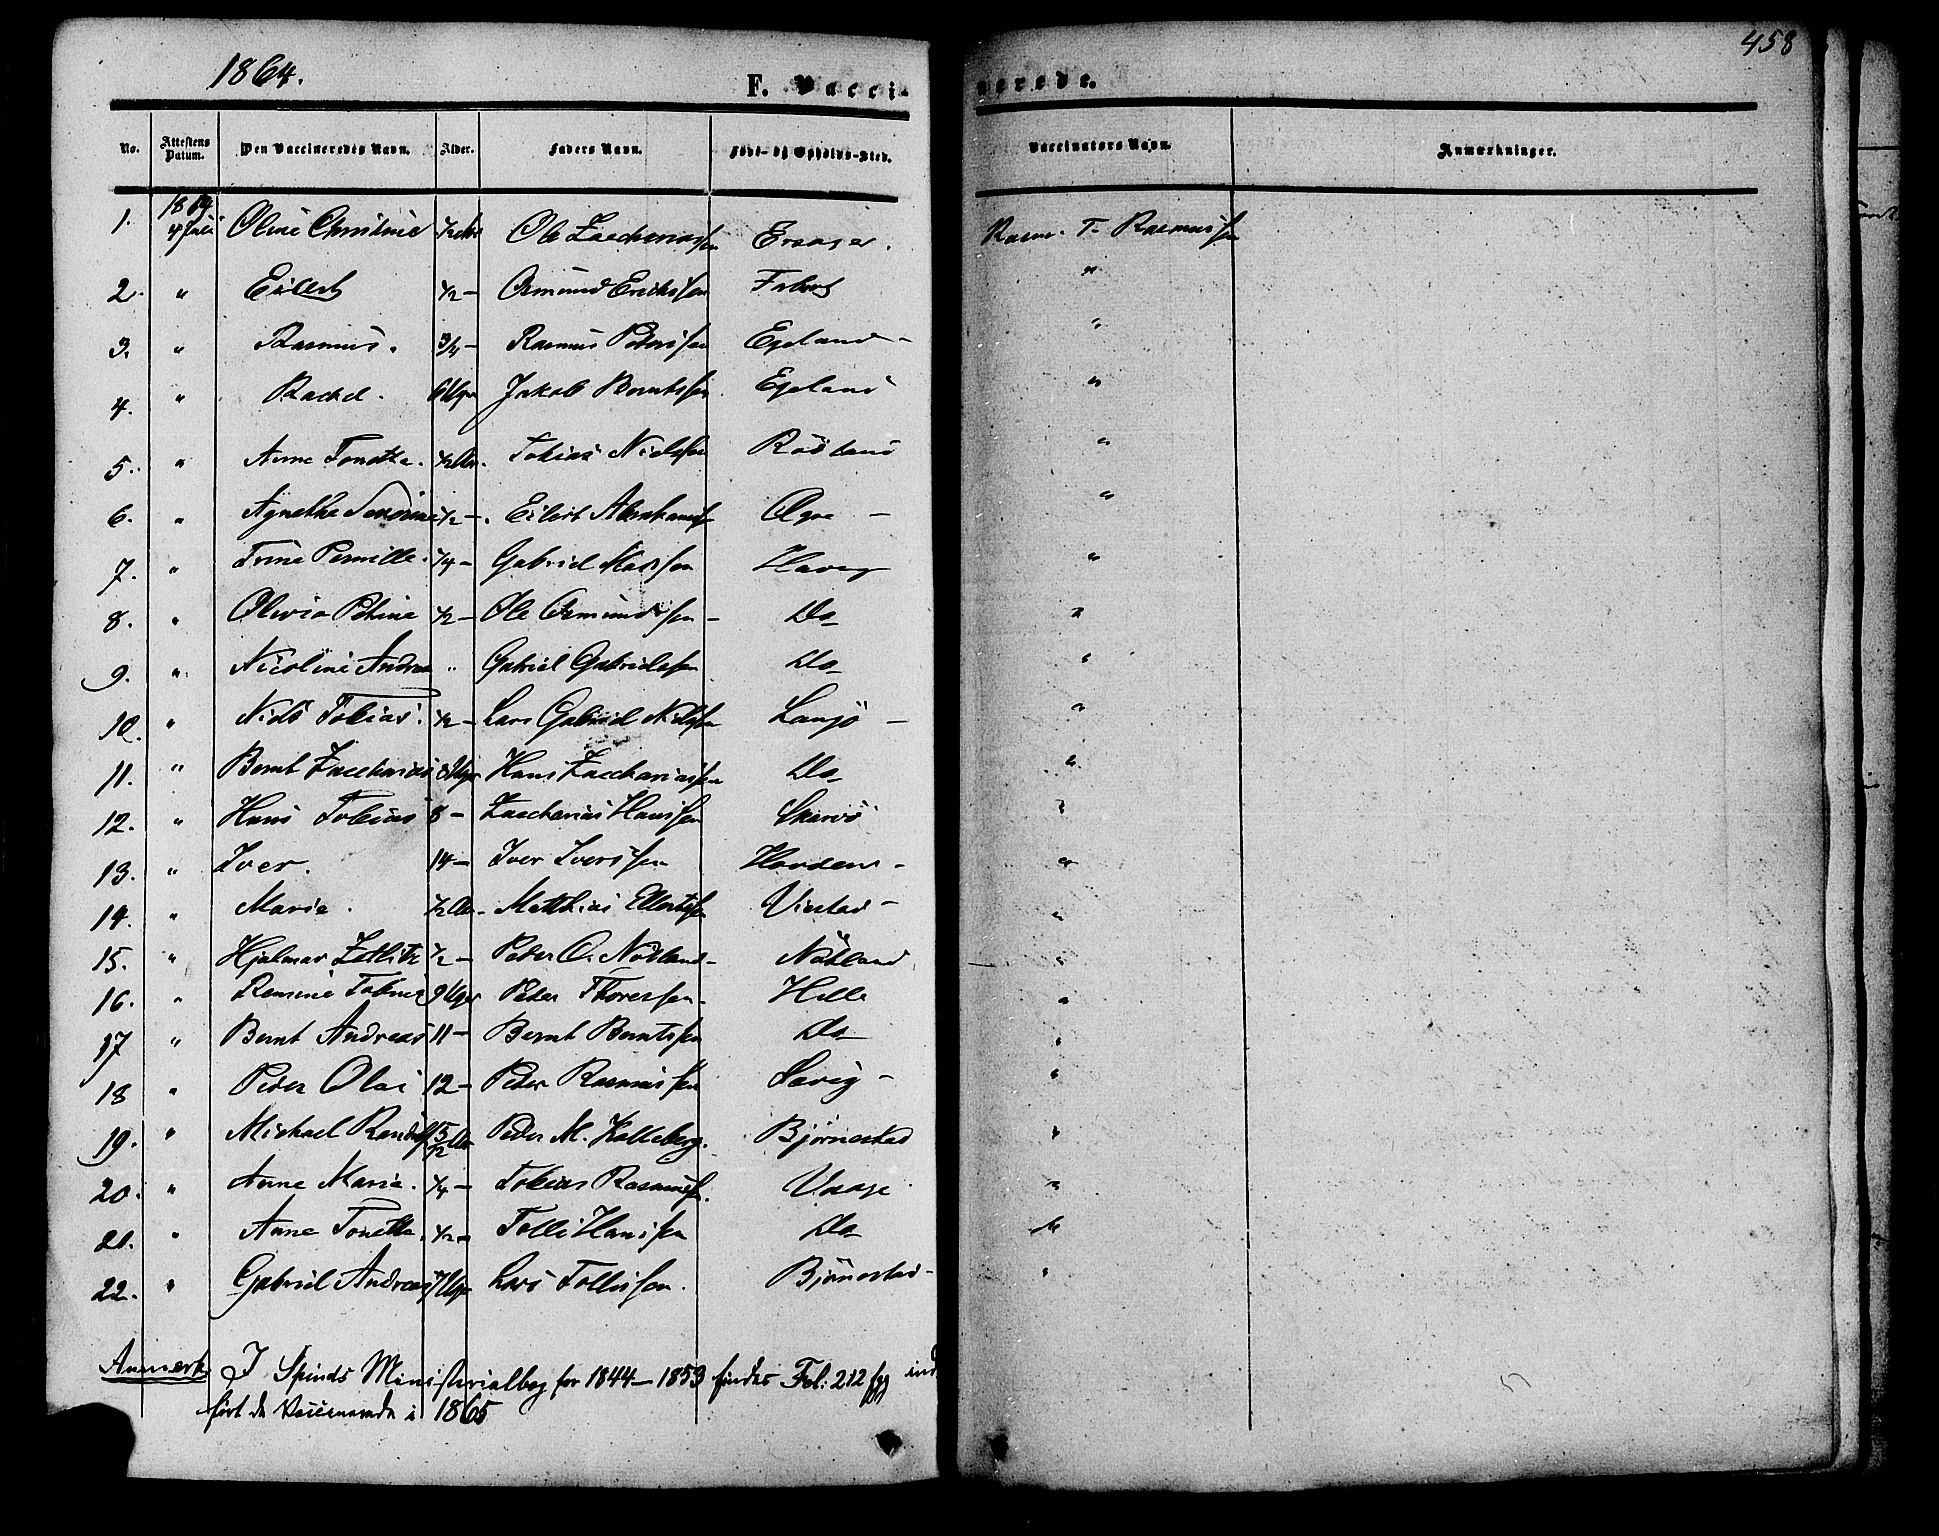 458
1864.
F. Vaccinerede.
No. Attestens Datum. Den Vaccineredes Navn. Alder. Faders Navn. Føde- og Opholds-Sted. Vaccinators Navn. Anmærkninger.
1. 1864 4 Juli Oline Christine 1/2 Ole Zachariassen T. Rasmussen
2. " Eilert 1/2 – Osmund Erickssen "
3. " Rasmus. 3/4 – Rasmus Peterssen Egeland – "
4. " Rachel. 6 Uger Jakob Berntssen Egeland "
5. " Anne Tonette. 1/2 Aar. Tobias Nielssen Rödland "
6. " Agnethe Severine 1/2 – Eilert Abrahamssen –  "
7. " Trine Pernille. 1/4 – Gabriel Madssen Havig "
8. " Olevia Petrine 1/2 – Ole Osmundssen – Do "
9. " Nicoline Andrea " Gabriel Gabrielssen Do "
10. " Niels Tobias. 1/2 – Lars Gabriel Nielssen Langö – "
11. " Bernt Zacharias 8 Uger Hans Zachariassen Do "
12. " Hans Tobias 8 – Zacharias Hanssen Skarvö "
13. " Iver. 14 – Iver Iverssen – "
14. " Marie. 1/2 Aar. Matthias Ellertssen Viestad – "
15. " Hjalmar Zetlitz 1/2 – Peder O. Nötland – Nötland "
16. " 9 Uger Peder Thoressen. Hille "
17 " Bernt Andreas 11 – Bernt Berntssen Do "
18 " Peder Olai 12 – Peder Rasmussen Savig – "
19. " Michael 5/12 Aar Peder M. Kalleberg. Bjørnestad "
20. " Anne Marie. 1/4 – Tobias Rasmussen. Vaage "
21. " Anne Tonette. 1/2 – Tollef Hanssen Do "
22. " Gabriel Andreas 7 Uger Lars Tollefssen. Bjørnestad – "
Anmerk. I Spinds Ministerialbog for 1844–1859 findes Fol: 212 fgg ind
ført de Vaccinerede i 1865